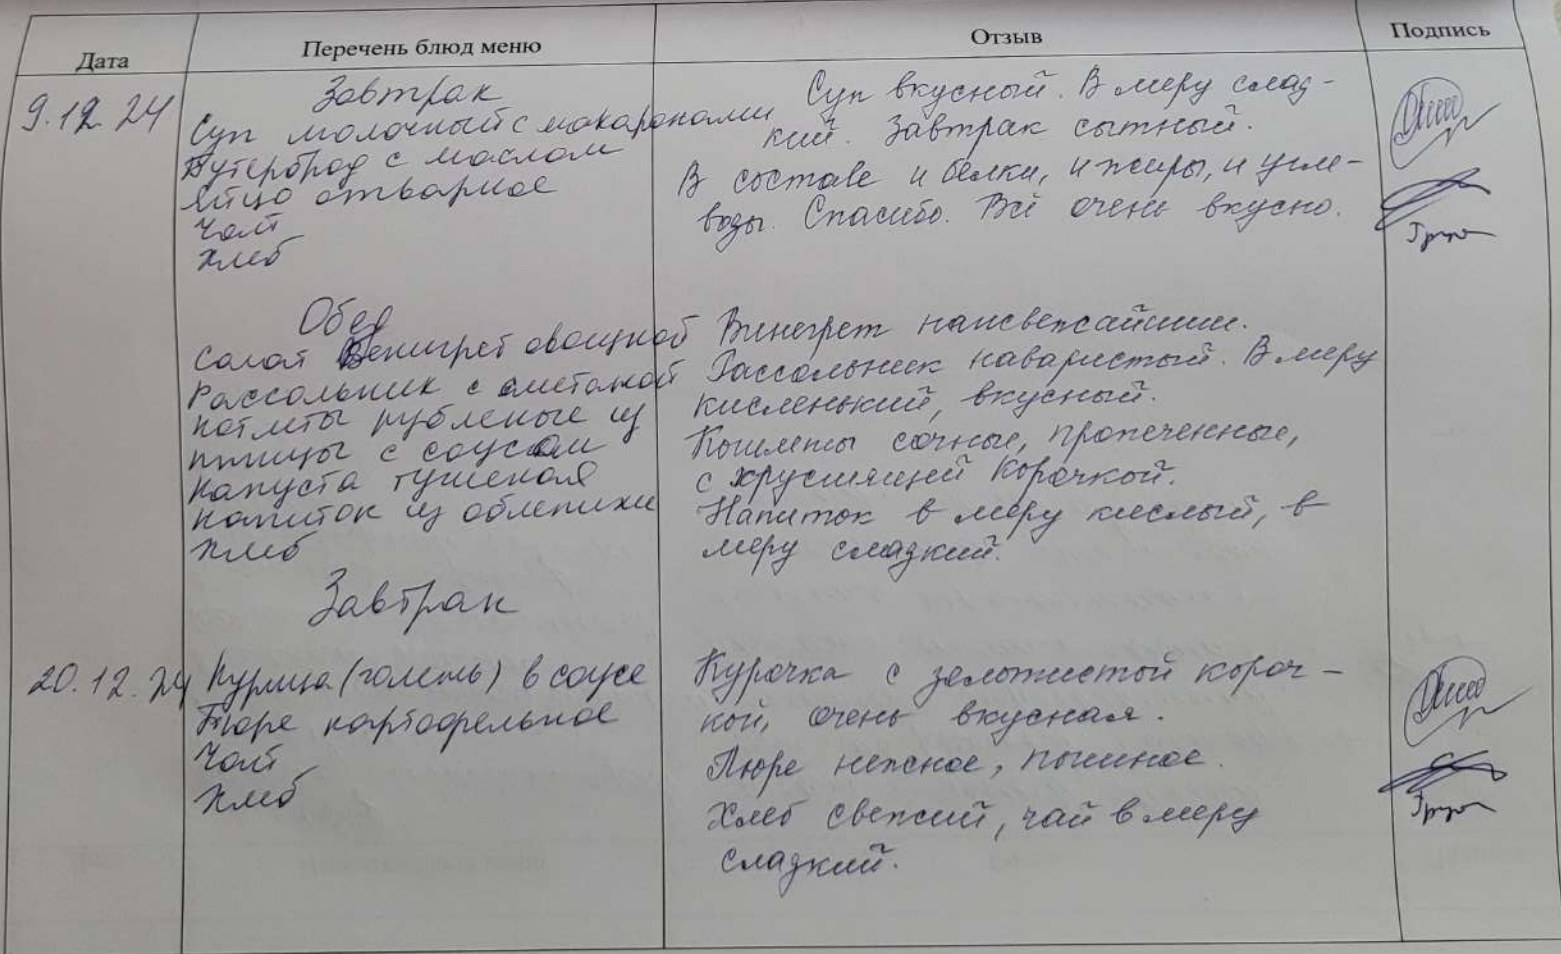 Дата
Перечень блюд меню
Отзыв
Подпись
9.12.24
Завтрак
Суп молочный с макаронами
Бутерброд с маслом
Яйцо отварное
Чай
Хлеб
Суп вкусный. В меру слад-
кий. Завтрак сытный.
В составе и белки, и жиры, и угле-
воды. Спасибо. Всё очень вкусно.
Обед
Салат Венигрет овощной
Рассольник с сметаной
Котлеты рубленые из
птицы с соусом
Капуста тушеная
Напиток из облепихи
Хлеб
Винегрет наисвежайший.
Рассольник наваристый. В меру
кисленький, вкусный.
Котлеты сочные, пропеченные,
с хрустящей корочкой.
Напиток в меру кислый, в
меру сладкий.
Завтрак
20.12.24
Курица (голень) в соусе
Пюре картофельное
Чай
Хлеб
Курочка с золотистой короч-
кой, очень вкусная.
Пюре нежное, пышное.
Хлеб свежий, чай в меру
сладкий.